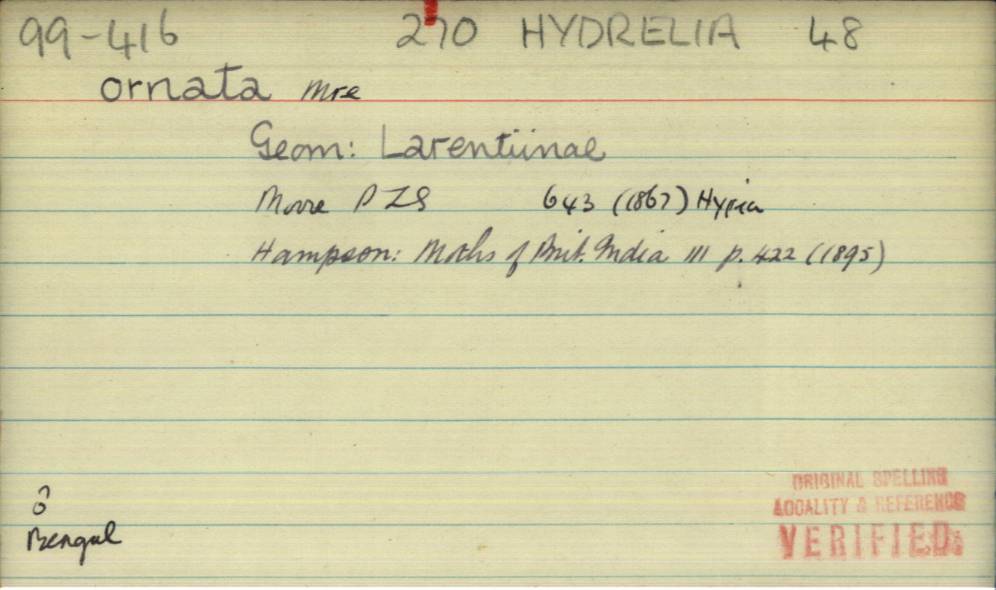 99-416 270 HYDRELIA 48
ornata Mre
Geom: Larentiinae
Moore PZS 643 (1867) Hyria
Hampson: Moths of Brit. India III p. 422 (1895)
♂
Bengal
ORIGINAL SPELLING
LOCALITY & REFERENCE
VERIFIED.